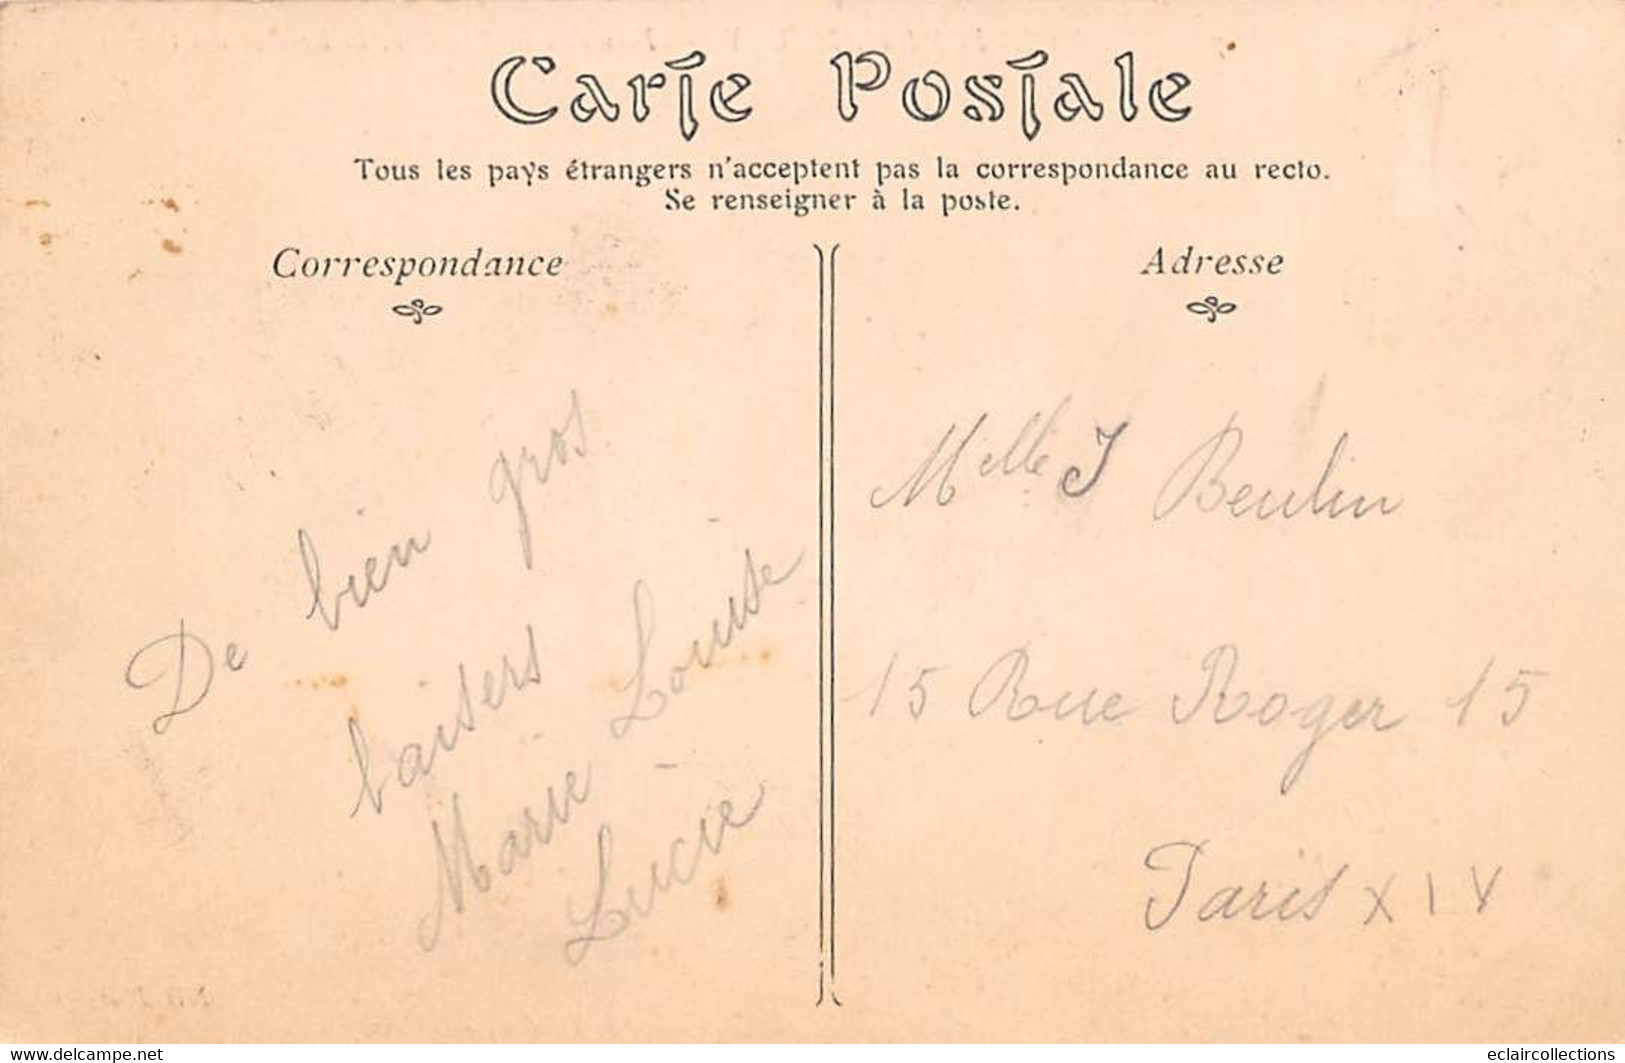 Carte Postale
Tous les pays étrangers n'acceptent pas la correspondance au recto.
Se renseigner à la poste.
Correspondance
De bien gros
baisers
Marie Louise
Lucie
Adresse
Melle J Beulin
15 Rue Roger 15
Paris XIV
www.delcampe.net
eclaircollections